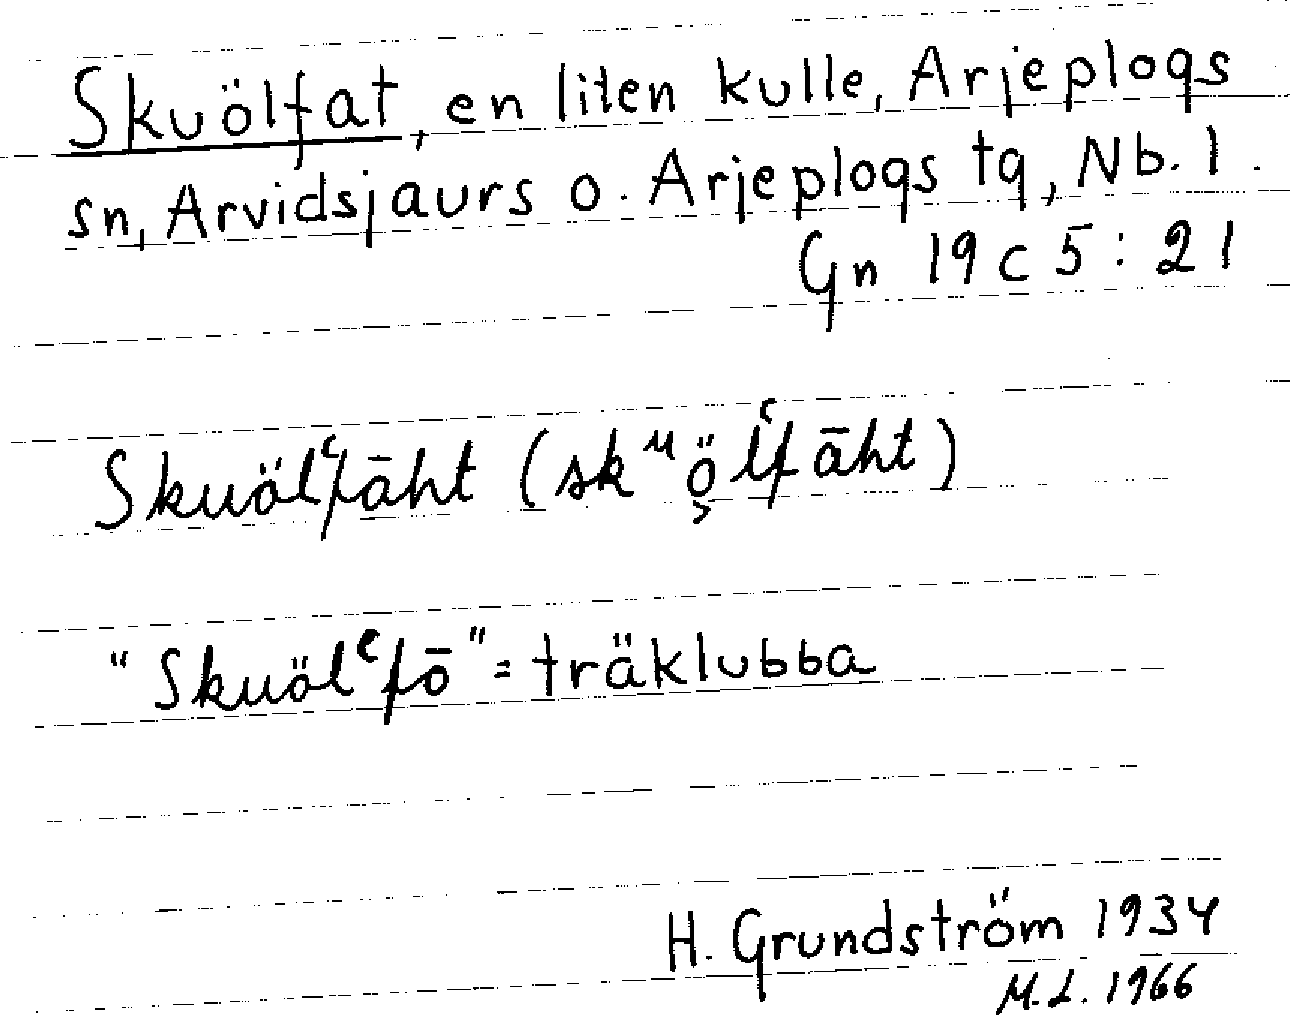 Skuölfat, en liten kulle, Arjeplogs
sn, Arvidsjaurs o. Arjeplogs tg, Nb. l.
Gn 19 c 5 : 21
Skuölʿfāht (skᵘö̬lʿfāht)
"Skuölʿfō" = träklubba
H. Grundström 1934
M.L. 1966